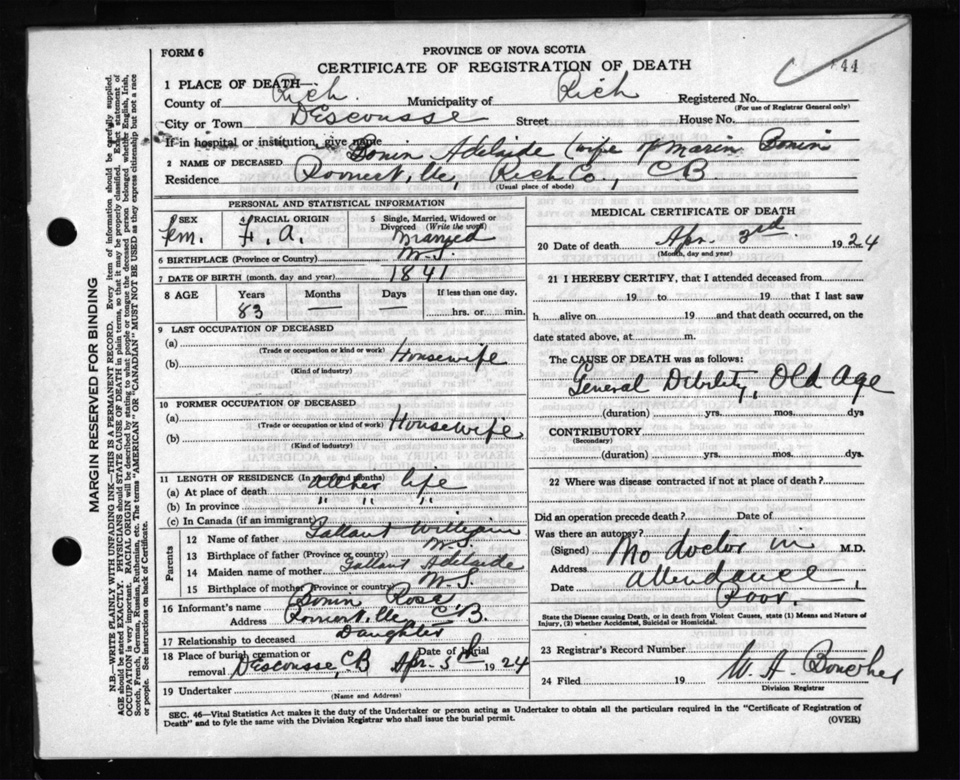 44
FORM 6
PROVINCE OF NOVA SCOTIA
CERTIFICATE OF REGISTRATION OF DEATH
1 PLACE OF DEATH—
County of Rich. Municipality of Rich Registered No.
(For use of Registrar General only)
City or Town DEscousse Street House No.
If in hospital or institution, give name
2 NAME OF DECEASED Bonin Adelaide (wife of Marin Bonin
Residence Rich Co., CB
(Usual place of abode)
PERSONAL AND STATISTICAL INFORMATION
3 SEX 4 RACIAL ORIGIN 5 Single, Married, Widowed or Divorced (Write the word)
Fem. A. Married
6 BIRTHPLACE (Province or Country) N.S.
7 DATE OF BIRTH (month, day and year) 1841
8 AGE Years Months Days If less than one day,
83 — — hrs. or min.
9 LAST OCCUPATION OF DECEASED
(a)
(Trade or occupation or kind of work)
(b) Housewife
(Kind of industry)
10 FORMER OCCUPATION OF DECEASED
(a)
(Trade or occupation or kind of work)
(b) Housewife
(Kind of industry)
11 LENGTH OF RESIDENCE (In years and months)
(a) At place of death all her life
(b) In province " " "
(c) In Canada (if an immigrant)
Parents
12 Name of father Gallant William
13 Birthplace of father (Province or country) N.S.
14 Maiden name of mother Gallant Adelaide
15 Birthplace of mother (Province or country) N.S.
16 Informant's name Bonin Rosa
Address CB.
17 Relationship to deceased Daughter
18 Place of burial, cremation or removal DEscousse, CB Date of burial Apr. 5th 1924
19 Undertaker
(Name and Address)
MEDICAL CERTIFICATE OF DEATH
20 Date of death Apr. 3rd. 1924
(Month, day and year)
21 I HEREBY CERTIFY, that I attended deceased from
19 to 19 that I last saw
h alive on 19 and that death occurred, on the
date stated above, at m.
The CAUSE OF DEATH was as follows:
General Debility, Old Age
(duration) yrs. mos. dys
CONTRIBUTORY
(Secondary)
(duration) yrs. mos. dys.
22 Where was disease contracted if not at place of death?
Did an operation precede death? Date of
Was there an autopsy?
(Signed) No doctor in M.D.
Address attendance
Date Poor.
State the Disease causing Death, or in death from Violent Causes, state (1) Means and Nature of
Injury, (2) whether Accidental, Suicidal or Homicidal.
23 Registrar's Record Number
24 Filed 19 W. A.
Division Registrar
SEC. 46—Vital Statistics Act makes it the duty of the Undertaker or person acting as Undertaker to obtain all the particulars required in the "Certificate of Registration of
Death" and to fyle the same with the Division Registrar who shall issue the burial permit.
(OVER)
MARGIN RESERVED FOR BINDING
N.B.—WRITE PLAINLY WITH UNFADING INK—THIS IS A PERMANENT RECORD. Every item of information should be carefully supplied.
AGE should be stated EXACTLY. PHYSICIANS should STATE CAUSE OF DEATH in plain terms, so that it may be properly classified. Exact statement of
OCCUPATION is very important. RACIAL ORIGIN will be described by stating to what people or tongue the deceased person belonged whether English, Irish,
Scotch, French, German, Russian, Ruthenian, etc. The terms "AMERICAN" OR "CANADIAN" MUST NOT BE USED as they express citizenship but not a race
or people. See instructions on back of Certificate.